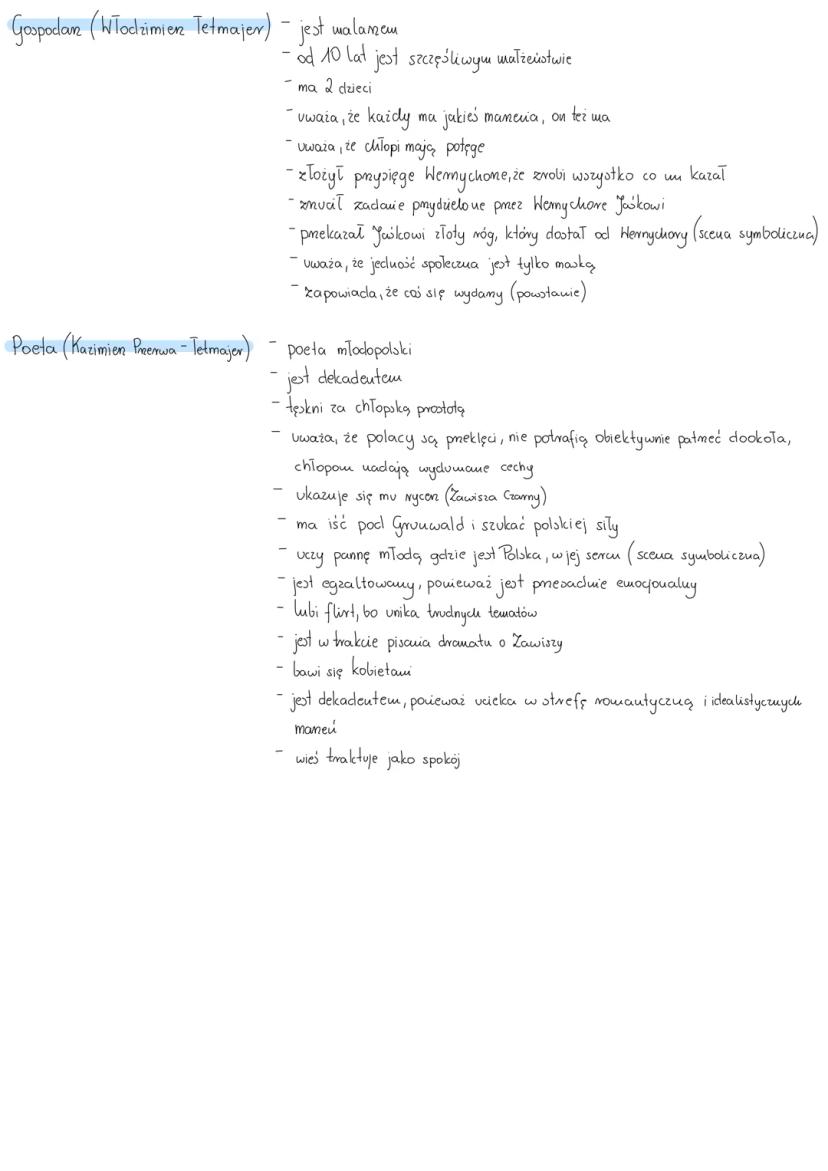 Gospodarz (Włodzimierz Tetmajer) - jest malarzem
- od 10 lat jest szczęśliwym małżeństwie
- ma 2 dzieci
- uważa, że każdy ma jakieś marzenia, on też ma
- uważa, że chłopi mają potęgę
- złożył przysięgę Wernychorze, że zrobi wszystko co mu kazał
- zrzucił zadanie przydzielone przez Wernychorę Jaśkowi
- przekazał Jaśkowi złoty róg, który dostał od Wernychory (scena symboliczna)
- uważa, że jedność społeczna jest tylko maską
- zapowiada, że coś się wydarzy (powstanie)
Poeta (Kazimierz Przerwa - Tetmajer) - poeta młodopolski
- jest dekadentem
- tęskni za chłopską prostotą
- uważa, że polacy są przeklęci, nie potrafią obiektywnie patrzeć dookoła,
chłopom nadają wydumane cechy
- ukazuje się mu rycerz (Zawisza Czarny)
- ma iść pod Grunwald i szukać polskiej siły
- uczy pannę młodą gdzie jest Polska, w jej sercu (scena symboliczna)
- jest egzaltowany, ponieważ jest przesadnie emocjonalny
- lubi flirt, bo unika trudnych tematów
- jest w trakcie pisania dramatu o Zawiszy
- bawi się kobietami
- jest dekadentem, ponieważ ucieka w strefę romantyczną i idealistycznych
marzeń
- wieś traktuje jako spokój